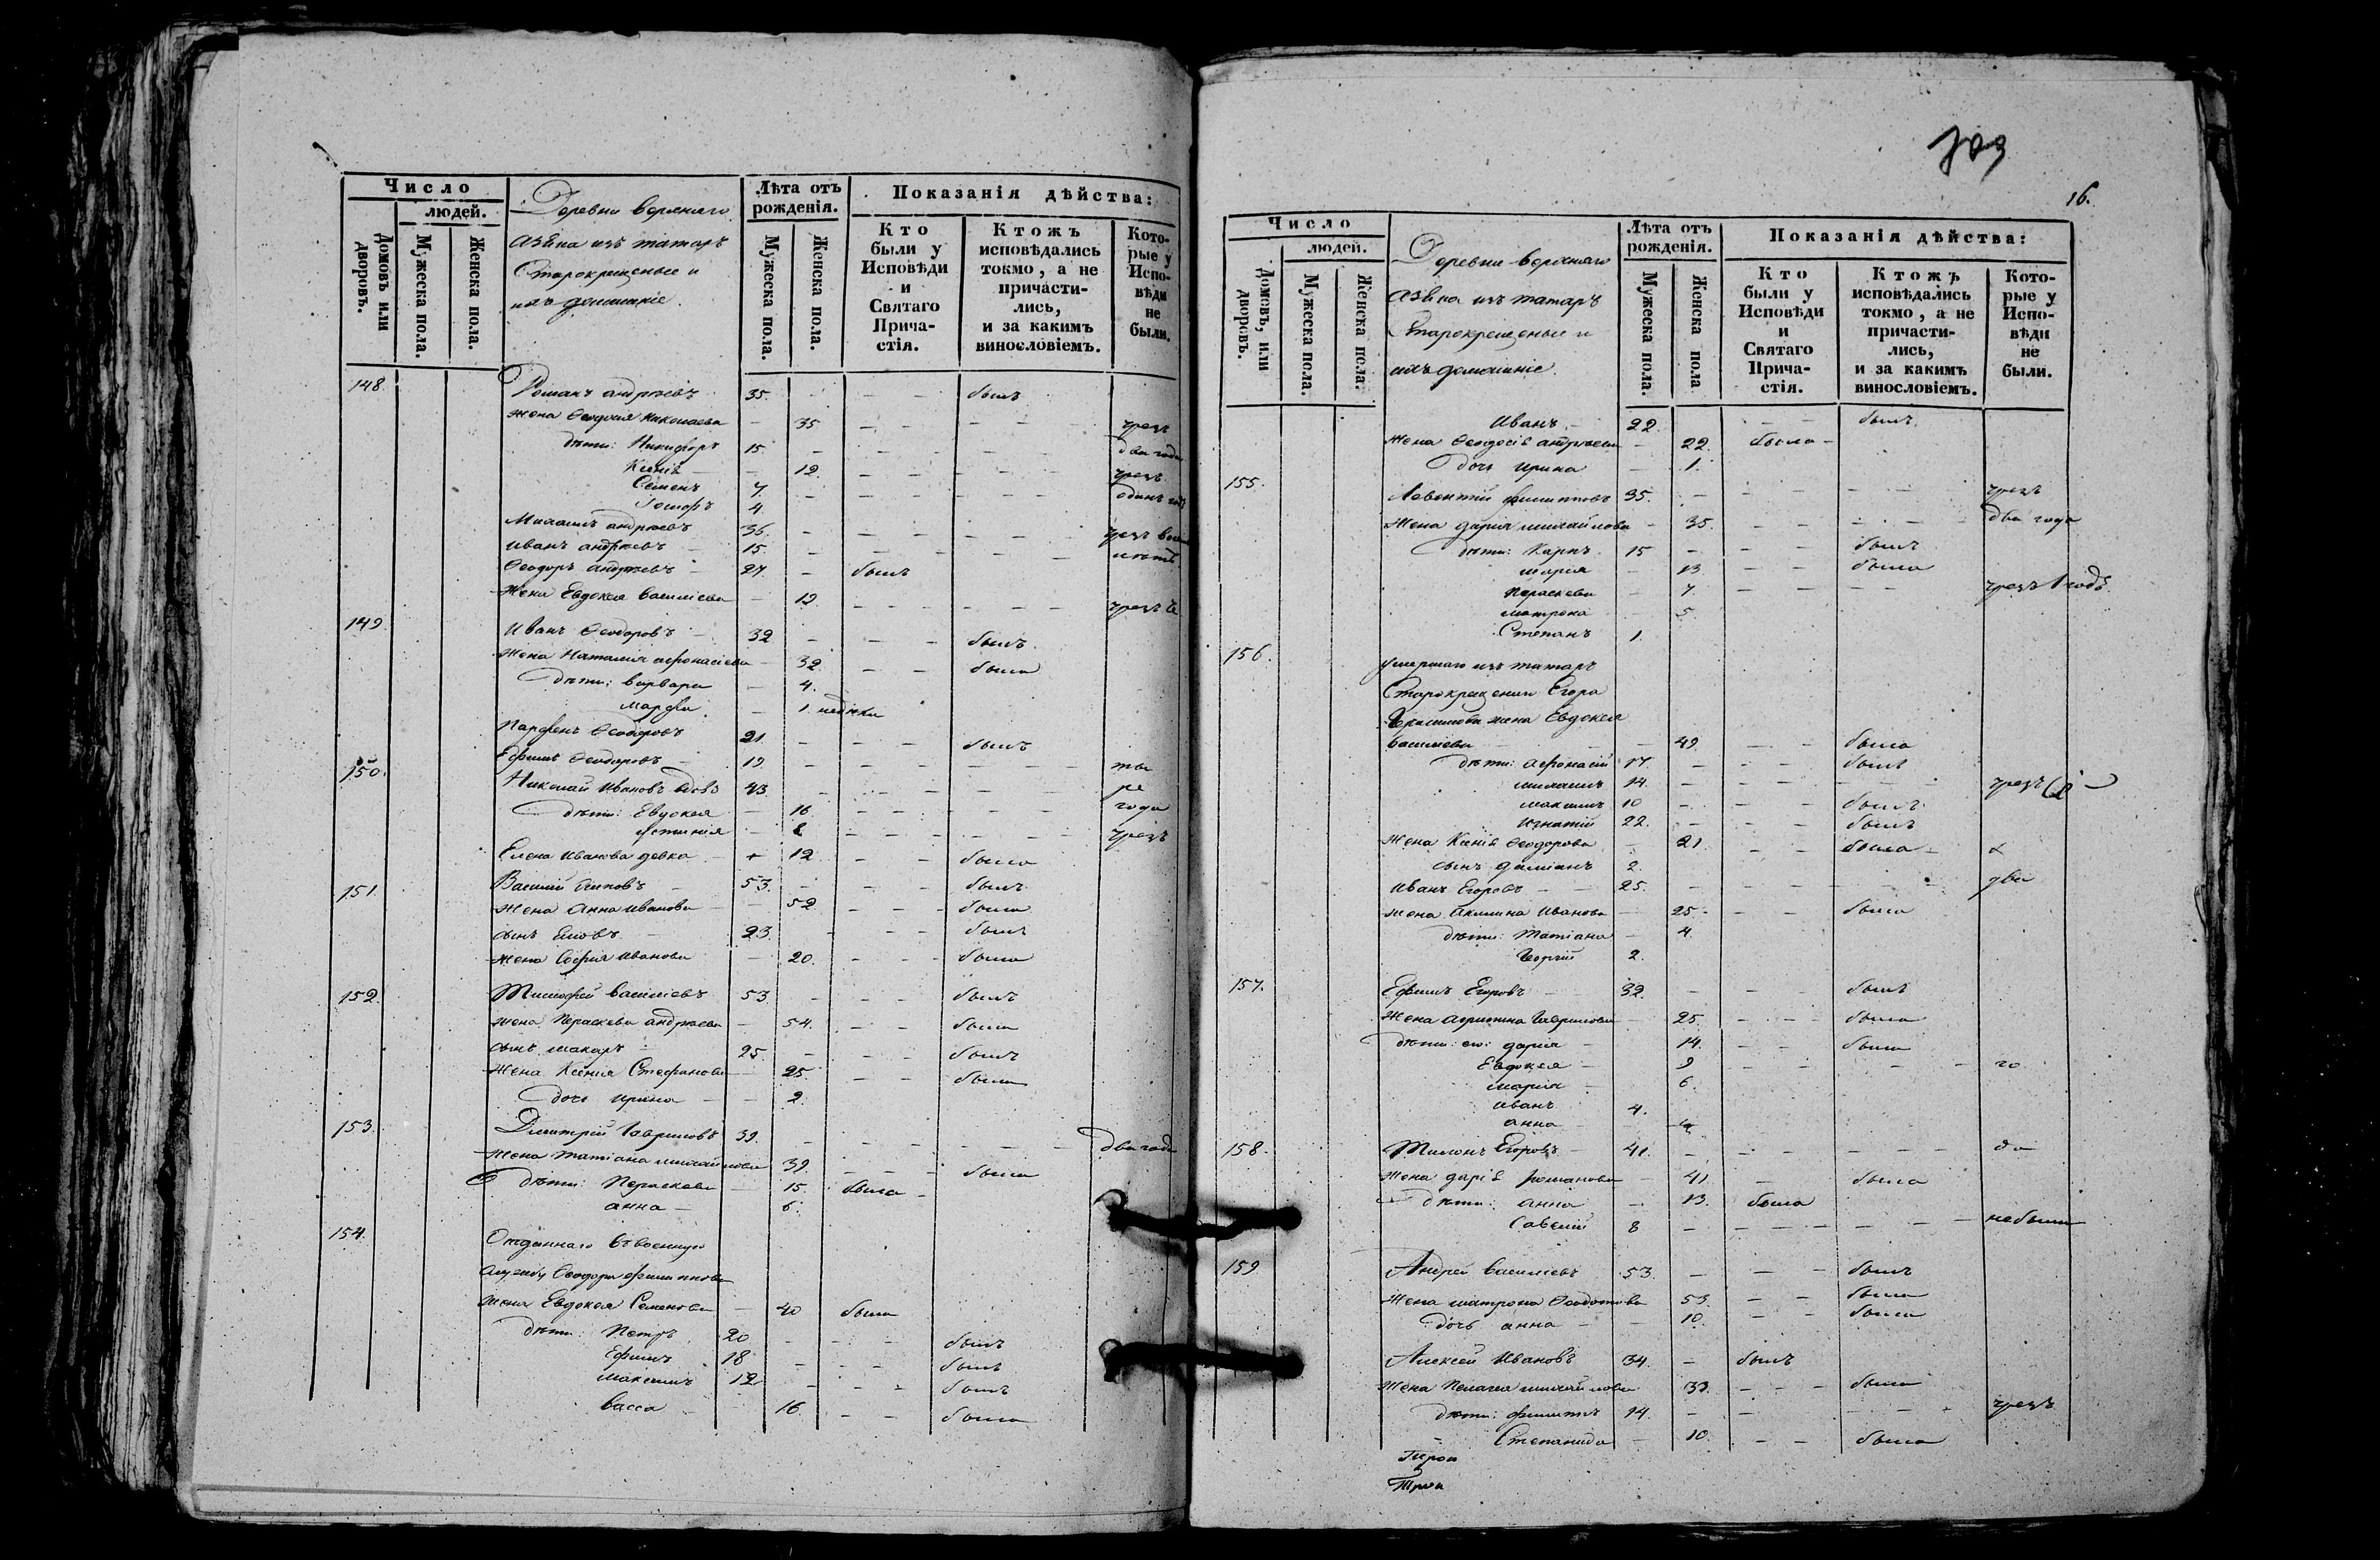 Число
людей.
Домовъ или дворовъ.
Мужеска пола.
Женска пола.
Деревни Верхняго
Азяка изъ татаръ
Старокрещеные и
ихъ домашніе.
Лѣта отъ рожденія.
Мужеска пола.
Женска пола.
Показанія дѣйства:
Кто были у Исповѣди и Святаго Прича-стія.
Ктожъ исповѣдались токмо, а не причасти-лись, и за какимъ винословіемъ.
Кото-рые у Испо-вѣди не были.
148. Романъ Андреевъ 35. – – – былъ
Жена Ѳеодосія Николаева – 35 – – – – чрезъ
дѣти: Никифоръ 15. – – – – два года
Ксенія – 12. – – – – чрезъ
Семенъ 7. – – – – – одинъ годъ
Іосифъ 4.
Михаилъ Андреевъ 36. – – – – – чрезъ
Иванъ Андреевъ 15. – – – – –
Ѳеодоръ Андреевъ 27. – былъ
Жена Евдокея Василіева – 19. – – – – – чрезъ
149. Иванъ Ѳеодоровъ 32 – – – былъ.
Жена Наталия Афонасіева – 32. – – была
дѣти: Варвара – 4.
Марфа – 1. недѣли
Парфенъ Ѳеодоровъ 21. – – – былъ
Ефимъ Ѳеодоровъ 19. – – – – –
150. Николай Ивановъ вдовъ 43. – – – – –
дѣти: Евдокея – 16. – – – – года
Устинія – 8 – – – – – чрезъ
Елена Иванова девка – + 12 – – была
151. Василій 53. – – – былъ
Жена Анна Иванова – 52. – – – была
сынъ 23. – – – былъ
Жена Софія Иванова – 20. – – – была
152. Тимофей Василіевъ 53. – – – былъ
Жена Параскева Андреева – 54. – – была
сынъ Макаръ 25. – – – былъ
Жена Ксения Стефанова – 25. – – была
дочь Ирина – 2.
153. Дмитрій Гавриловъ 39. – – – – – два года
Жена Татіана Михайлова 39. – – – была
дѣти: Параскева 15. была –
Анна – 6.
154. Отданнаго въ военную
службу Ѳеодора Филиппова
Жена Евдокея Семенова – 40 была
дѣти: Петръ 20 – – – былъ
Ефимъ 18 – – – былъ
Максимъ 12 – – – былъ
Васса 16. – – была
16.
Число
людей.
Домовъ, или дворовъ.
Мужеска пола.
Женска пола.
Деревни Верхняго
Азяка изъ татаръ
Старокрещеные и
ихъ домашніе.
Лѣта отъ рожденія.
Мужеска пола.
Женска пола
Показанія дѣйства:
Кто были у Исповѣди и Святаго Прича-стія.
Ктожъ исповѣдались токмо, а не причасти-лись, и за какимъ винословіемъ.
Кото-рые у Испо-вѣди не были.
Иванъ – 22. – – былъ.
Жена Ѳеодосія Андреева – 22. была –
дочь Ирина – 1.
155. Леонтій Филипповъ 35. – – – – – чрезъ
Жена Дарія Михайлова – 35. – – – – два года
дѣти: Карпъ 15 – – – былъ
Мария – 13. – – была
Параскева – 7. – – – – чрезъ 1 годъ
Матрона – 5.
Степанъ 1.
156. Умершаго изъ татаръ
Старокрещенина Егора
Герасимова жена Евдокея
Василіева – 49. – – была
дѣти: Афонасій 17. – – – былъ
Михаилъ 14. – – – – – чрезъ
Максимъ 10 – – – былъ
Игнатій 22. – – – былъ
Жена Ксенія Ѳеодорова – 21 – – была –
сынъ Даміанъ 2.
Иванъ Егоровъ – 25. – – – – – два
Жена Акилина Иванова – 25 – – – была
дѣти: Татіана – 4.
Георгій 2.
157. Ефимъ Егоровъ – 32. – – – былъ
Жена Агрипина Гаврилова – 25. – – – была
дѣти: ею: Дарія – 14. – – была
Евдокея – 9 – – – – – го
Мария – 6.
Иванъ 4.
Анна –
158. Тихонъ Егоровъ – 41. – – – – – да
Жена Дарія Романова – 41. – – была
дѣти: Анна – 13. была
Савелій 8 – – – – – – не были
159 Андрей Василіевъ 53. – – – былъ
Жена Матрона Ѳеодотова 53. – – была
дочь Анна – – 10. – – была
Алексей Ивановъ 34. – былъ
Жена Пелагея Михайлова 33. – – – была
дѣти: Филиппъ 14. – – – – чрезъ
Степанида – 10. – – была